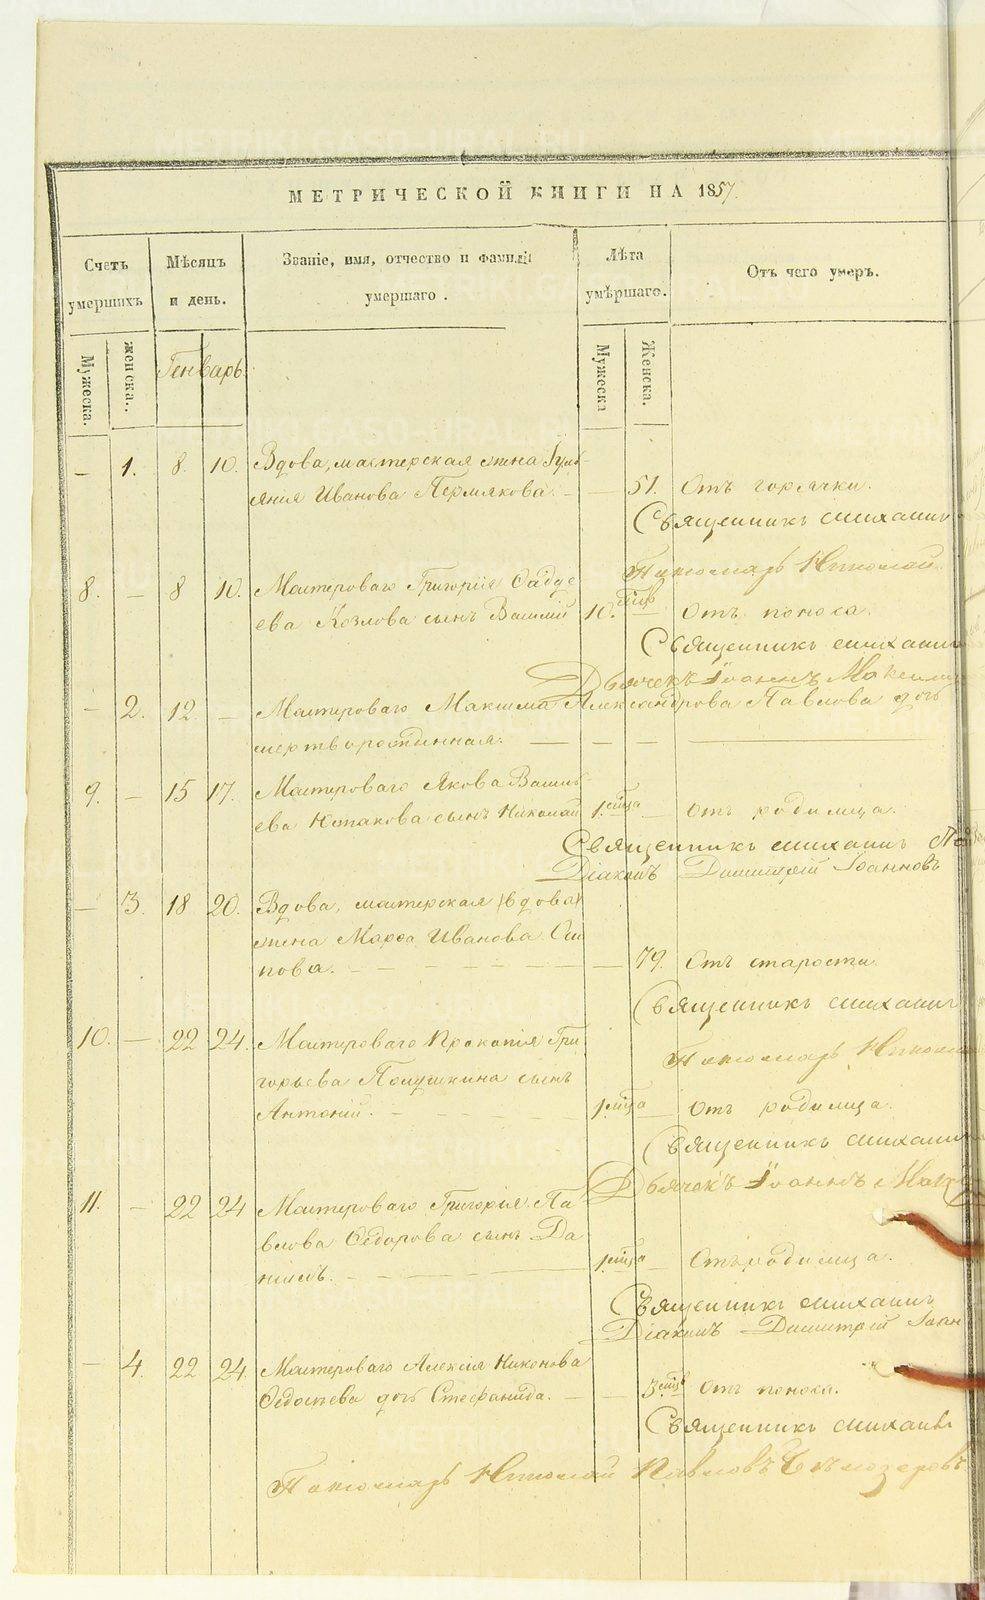 МЕТРИЧЕСКОЙ КНИГИ НА 1857.
Счетъ умершихъ
Мѣсяцъ и день.
Званіе, имя, отчество и фамилія умершаго.
Лѣта умѣршаго.
Отъ чего умеръ.
Мужеска.
женска.
Генварь.
Мужеска
Женска.
— 1. 8. 10. Вдова, мастерская жена
Иванова Пермякова. — — 51. Отъ горячки.
Священникъ Михаилъ
Пономарь Николай
8. — 8 10. Мастероваго Григорія
ева Козлова сынъ Василій 10. Отъ поноса.
Священникъ Михаилъ
Дьячекъ Іоаннъ
— 2. 12. — Мастероваго Максима Александрова Павлова дочь
мертворожденная. — — — —
9. — 15 17. Мастероваго Якова Василь
ева сынъ Николай 1. мца — Отъ родимца.
Священникъ Михаилъ
Діаконъ Димитрій Іоанновъ
— 3. 18 20. Вдова, мастерская (вдова)
жена Марѳа Иванова Оси
пова. — — 79. Отъ старости.
Священникъ Михаилъ
Пономарь Николай
10. — 22 24. Мастероваго Прокопія Гри
горьева сынъ
Антоній. — 1 мца — Отъ родимца.
Священникъ Михаилъ
Дьячекъ Іоаннъ
11. — 22 24 Мастероваго Григорія Па
влова Ѳедорова сынъ Да
ніилъ. — 1 мца — Отъ родимца.
Священникъ Михаилъ
Діаконъ Димитрій Іоан
— 4. 22 24. Мастероваго Алексія Никонова
дочь Стефанида. — — 3 Отъ поноса.
Священникъ Михаилъ
Пономарь Николай Павловъ Бѣлозеровъ